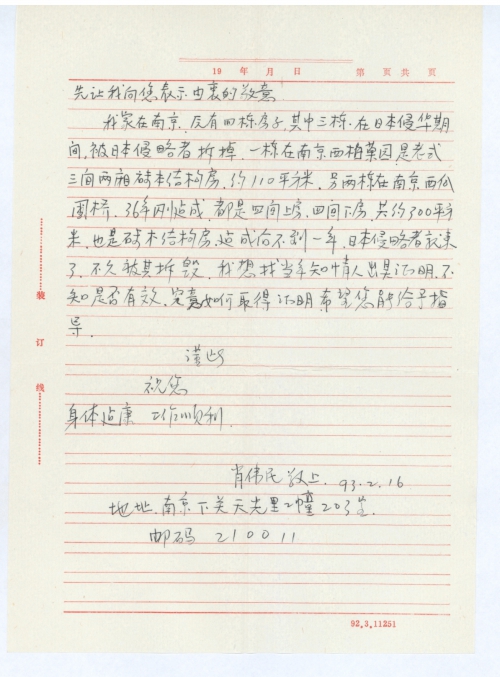 19 年 月 日 第 页共 页
先让我向您表示由衷的敬意
我家在南京,原有四栋房子,其中三栋,在日本侵华期
间,被日本侵略者拆掉,一栋在南京西柏菓园是老式
三间两厢砖木结构房,约110平方米,另两栋在南京西瓜
圃桥,36年刚造成,都是四间上房,四间下房,共约300平方
米,也是砖木结构房,造成后不到一年,日本侵略者就来
了,不久被其拆毁,我想找当年知情人出具证明,不
知是否有效,究竟如何取得证明希望您能给予指
导.
谨此
祝您
身体健康 工作顺利
肖伟民敬上. 93.2.16
地址.南京下关天光里2幢203室.
邮码 210011
装
订
线
92.3.11251